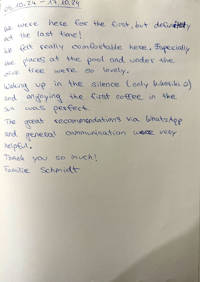 09.10.24 - 17.10.24
We were here for the first, but definitely
not the last time!
We felt really comfortable here. Especially
the places at the pool and under the
olive tree were so lovely.
Waking up in the silence (only kikeriki ☺)
and enjoying the first coffee in the
sun was perfect.
The great recommendations via WhatsApp
and general communication were very
helpful.
Thank you so much!
Familie Schmidt